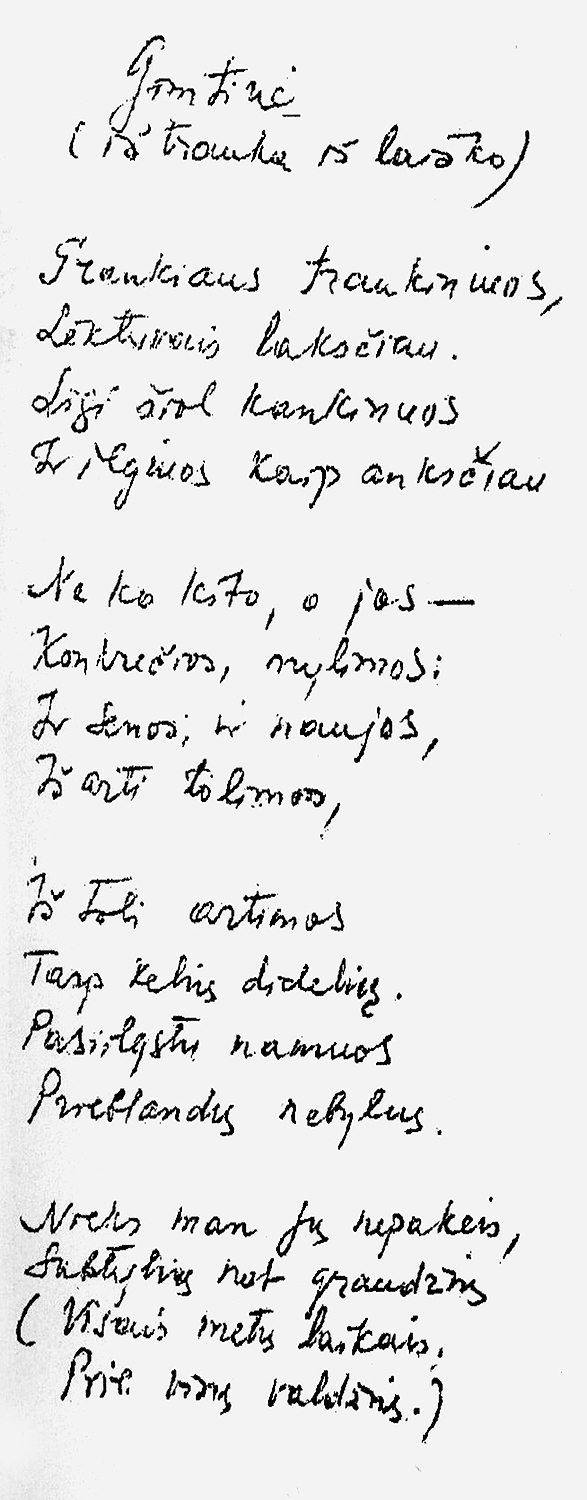 Gimtinė
(Ištrauka iš laiško)
Traukiaus traukiniuos,
Lėktuvais laksčiau.
Ligi šiol kankinuos
Ir ilgiuos kaip anksčiau
Ne ko kito, o jos —
Konkrečios, mylimos:
Ir senos, ir naujos,
Iš arti tolimos,
Iš toli artimos
Tarp kelių didelių.
Pasiilgstu namuos
Prieblandų nebylių.
Nieks man jų nepakeis,
Subtilių net graudžių
(Visais metų laikais,
Prie visų valdžių.)